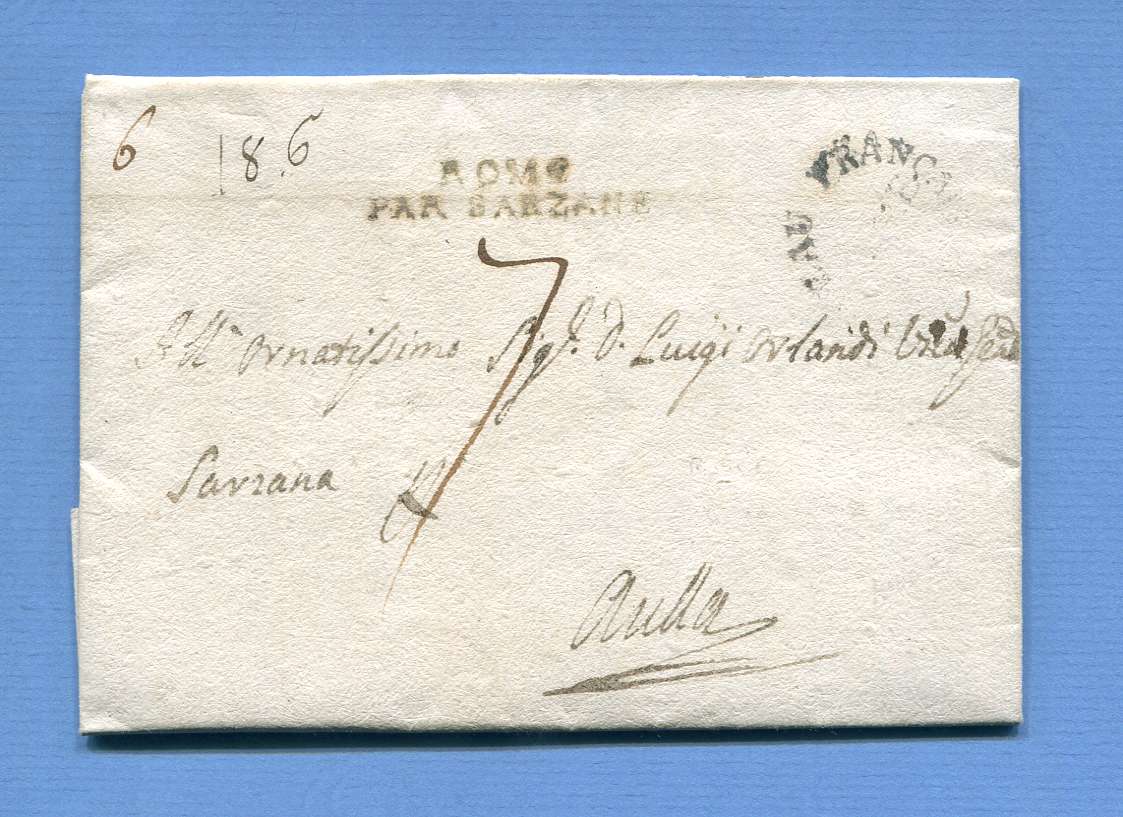 6 18.6
ROME
PAR SARZANE
FRANC
7
All' Ornatissimo Sig.r D. Luigi Orlandi
Sarzana P
Aulla